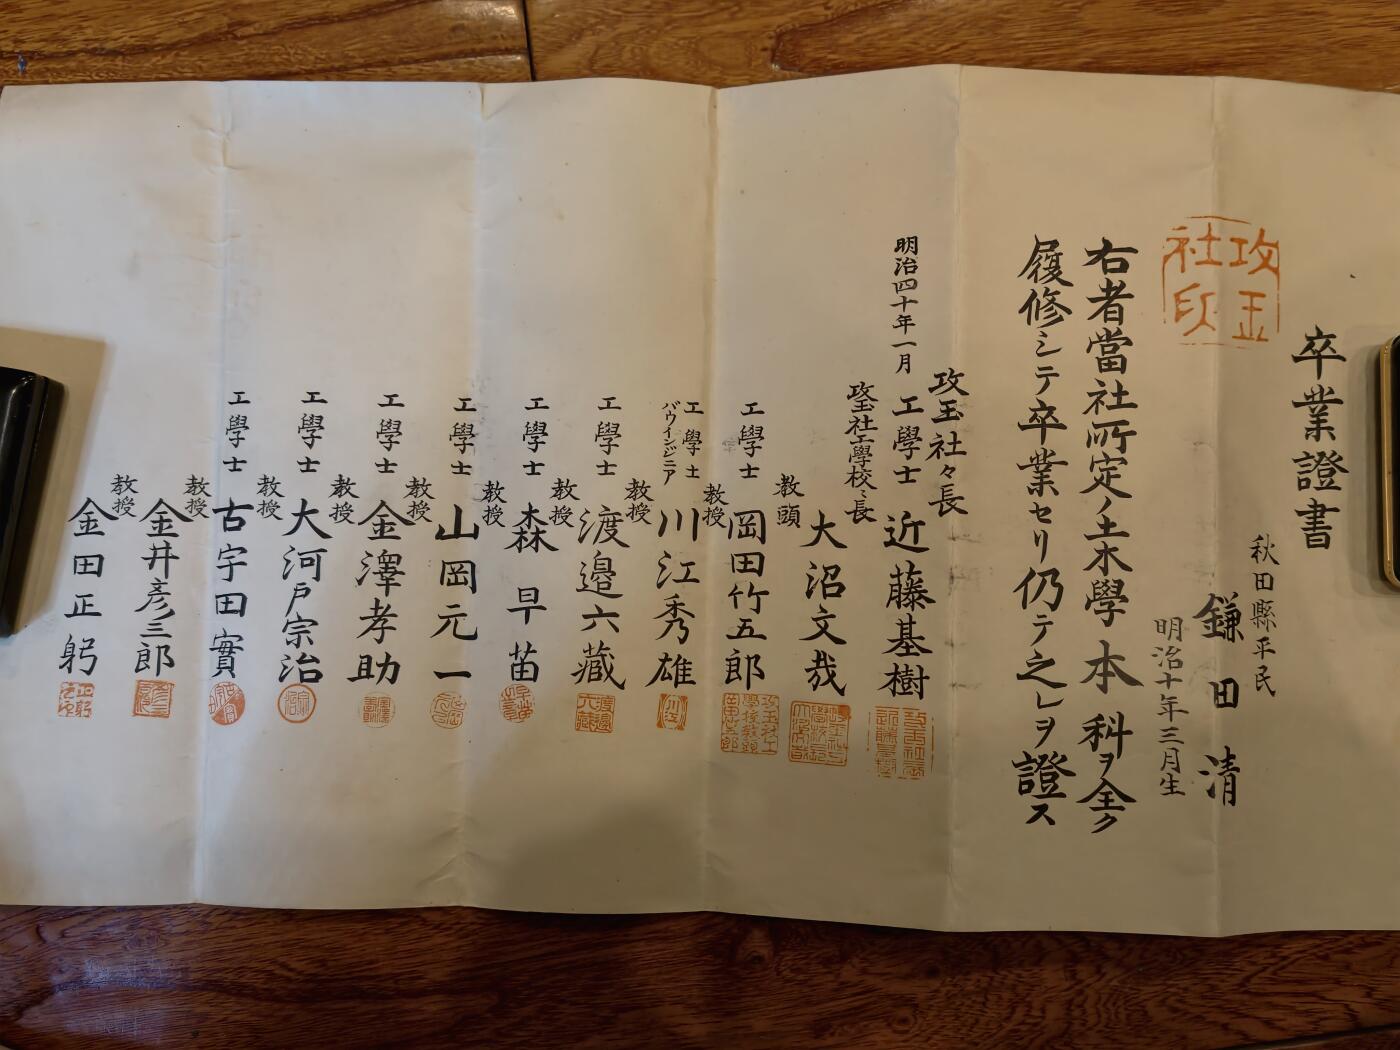 卒業證書
秋田縣平民
鎌田清
明治十年三月生
攻玉
社印
右者當社所定ノ土木學本科ヲ全ク
履修シテ卒業セリ仍テ之レヲ證ス
明治四十年一月
攻玉社々長
工學士 近藤基樹
攻玉社工學校〻長
大沼文哉
教頭
工學士 岡田竹五郎
教授
工學士
バウインジニア
川江秀雄
教授
工學士 渡邉六藏
教授
工學士 森早苗
教授
工學士 山岡元一
教授
工學士 金澤孝助
教授
工學士 大河戸宗治
教授
工學士 古宇田實
教授
金井彦三郎
教授
金田正躬